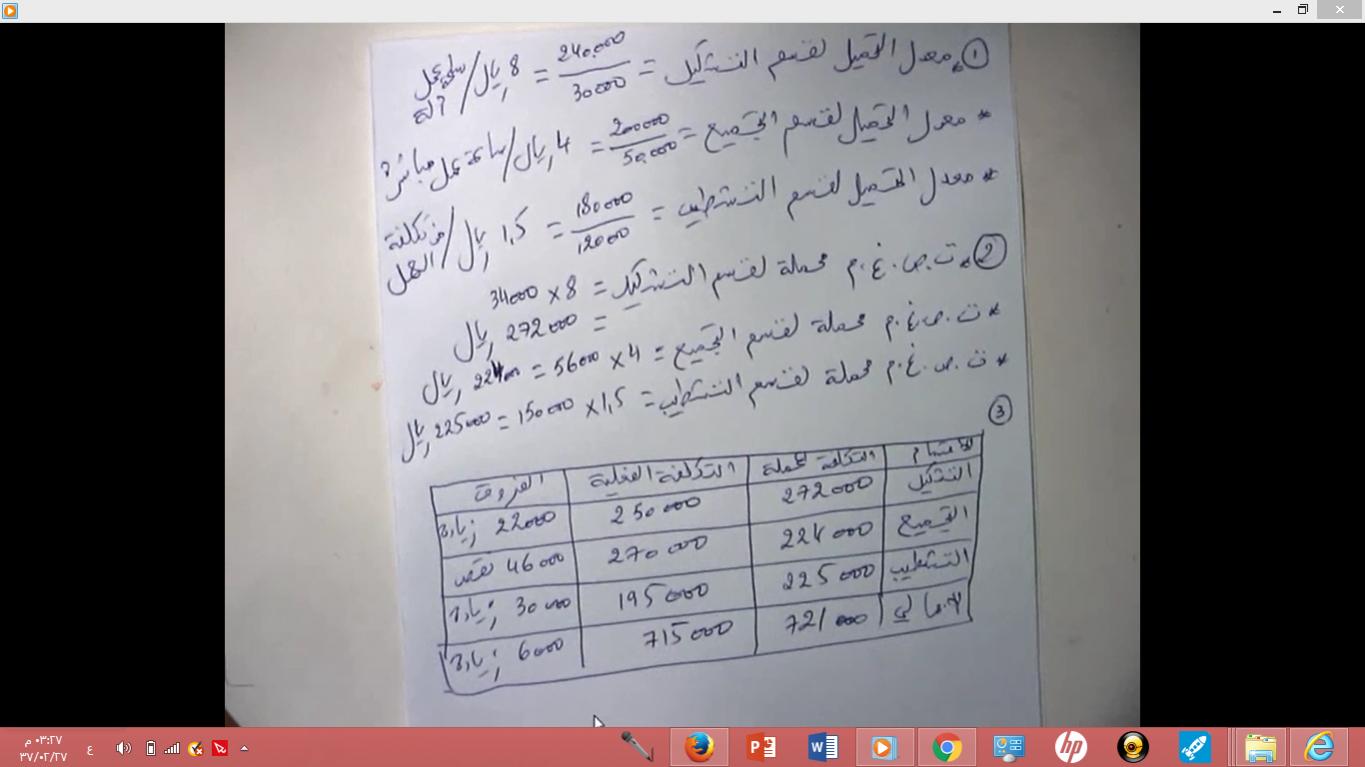 ① * معدل التحميل لقسم التشكيل = 240.000 / 30000 = 8 ريال / ساعة عمل آلة
* معدل التحميل لقسم التجميع = 200000 / 50.000 = 4 ريال / ساعة عمل مباشرة
* معدل التحميل لقسم التشطيب = 180000 / 120000 = 1,5 ريال / من تكلفة العمل
② * ت.ص.غ.م محملة لقسم التشكيل = 8 × 34000
= 272000 ريال
* ت.ص.غ.م محملة لقسم التجميع = 4 × 56000 = 224000 ريال
* ت.ص.غ.م محملة لقسم التشطيب = 1,5 × 150000 = 225000 ريال
③
الأقسام التكلفة المحملة التكلفة الفعلية الفروق
التشكيل 272000 250000 22000 زيادة
التجميع 224000 270000 46000 نقص
التشطيب 225000 195000 30000 زيادة
الاجمالي 721000 715000 6000 زيادة
ع
٠٣:٢٧ م
٣٧/٠٢/٢٧